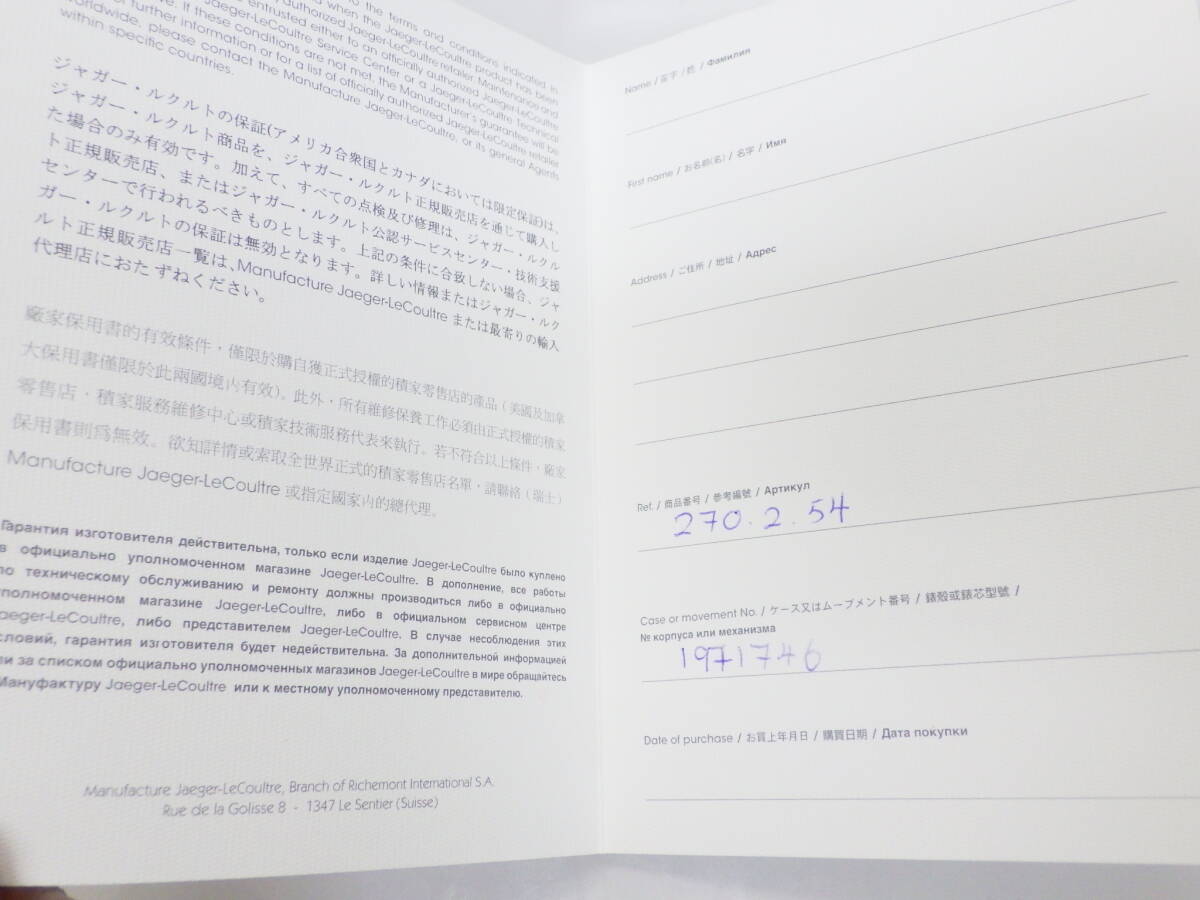 to the terms and conditions indicated in
when the Jaeger-LeCoultre product has been
authorized Jaeger-LeCoultre retailer. Maintenance and
entrusted either to an officially authorized Jaeger-LeCoultre
Jaeger-LeCoultre Service Center or a Jaeger-LeCoultre Technical
If these conditions are not met, the Manufacturer's guarantee will be
further information or for a list of officially authorized Jaeger-LeCoultre retailer
worldwide, please contact the Manufacture Jaeger-LeCoultre, or its general Agents
within specific countries.
ジャガー・ルクルトの保証(アメリカ合衆国とカナダにおいては限定保証)は、
ジャガー・ルクルト商品を、ジャガー・ルクルト正規販売店を通じて購入し
た場合のみ有効です。加えて、すべての点検及び修理は、ジャガー・ルクル
ト正規販売店、またはジャガー・ルクルト公認サービスセンター・技術支援
センターで行われるべきものとします。上記の条件に合致しない場合、ジャ
ガー・ルクルトの保証は無効となります。詳しい情報またはジャガー・ルク
ルト正規販売店一覧は、Manufacture Jaeger-LeCoultre または最寄りの輸入
代理店におたずねください。
廠家保用書的有效條件，僅限於購自獲正式授權的積家零售店的產品（美國及加拿
大保用書僅限於此兩國境內有效）。此外，所有維修保養工作必須由正式授權的積家
零售店，積家服務維修中心或積家技術服務代表來執行。若不符合以上條件，廠家
保用書則爲無效。欲知詳情或索取全世界正式的積家零售店名單，請聯絡（瑞士）
Manufacture Jaeger-LeCoultre 或指定國家內的總代理。
Гарантия изготовителя действительна, только если изделие Jaeger-LeCoultre было куплено
в официально уполномоченном магазине Jaeger-LeCoultre. В дополнение, все работы
по техническому обслуживанию и ремонту должны производиться либо в официально
уполномоченном магазине Jaeger-LeCoultre, либо в официальном сервисном центре
Jaeger-LeCoultre, либо представителем Jaeger-LeCoultre. В случае несоблюдения этих
словий, гарантия изготовителя будет недействительна. За дополнительной информацией
ли за списком официально уполномоченных магазинов Jaeger-LeCoultre в мире обращайтесь
Мануфактуру Jaeger-LeCoultre или к местному уполномоченному представителю.
Manufacture Jaeger-LeCoultre, Branch of Richemont International S.A.
Rue de la Golisse 8 - 1347 Le Sentier (Suisse)
Name / 苗字 / 姓 / Фамилия
First name / お名称(名) / 名字 / Имя
Address / ご住所 / 地址 / Адрес
Ref. / 商品番号 / 參考編號 / Артикул
270.2.54
Case or movement No. / ケース又はムーブメント番号 / 錶殼或錶芯型號 /
№ корпуса или механизма
1971746
Date of purchase / お買上年月日 / 購買日期 / Дата покупки